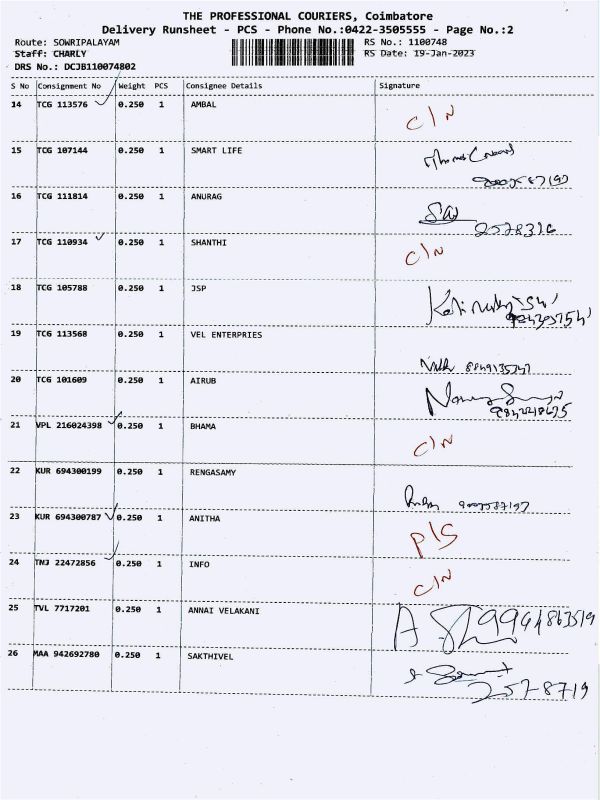 THE PROFESSIONAL COURIERS, Coimbatore
Delivery Runsheet - PCS - Phone No.:0422-3505555 - Page No.:2
Route: SOWRIPALAYAM RS No.: 1100748
Staff: CHARLY RS Date: 19-Jan-2023
DRS No.: DCJB110074802
S No Consignment No Weight PCS Consignee Details Signature
14 TCG 113576 0.250 1 AMBAL C/N
15 TCG 107144 0.250 1 SMART LIFE
16 TCG 111814 0.250 1 ANURAG
2578316
17 TCG 110934 0.250 1 SHANTHI C/N
18 TCG 105788 0.250 1 JSP
19 TCG 113568 0.250 1 VEL ENTERPRIES
20 TCG 101609 0.250 1 AIRUB
21 VPL 216024398 0.250 1 BHAMA C/N
22 KUR 694300199 0.250 1 RENGASAMY
23 KUR 694300787 0.250 1 ANITHA P/S
24 TNJ 22472856 0.250 1 INFO C/N
25 TVL 7717201 0.250 1 ANNAI VELAKANI
26 MAA 942692780 0.250 1 SAKTHIVEL
2578719